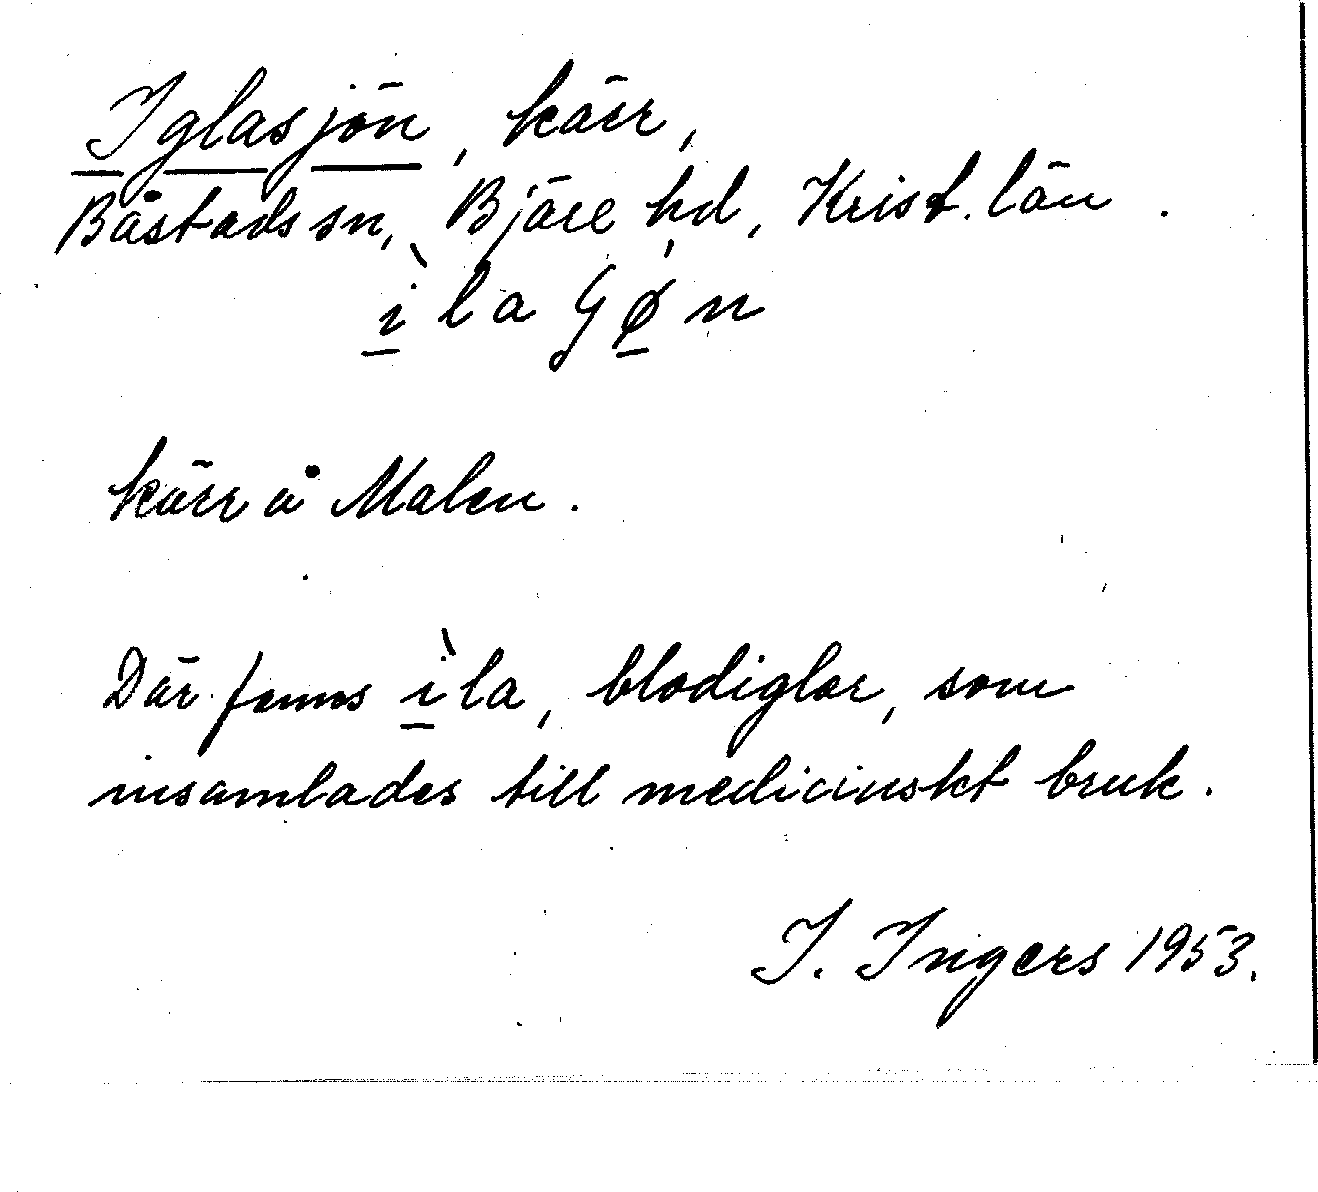 Iglasjön, kärr,
Båstads sn, Bjäre hd, Krist. län.
ìla ʃø̀n
kärr å Malen.
Där fanns ìla, blodiglar, som
insamlades till medicinskt bruk.
I. Ingers 1953.